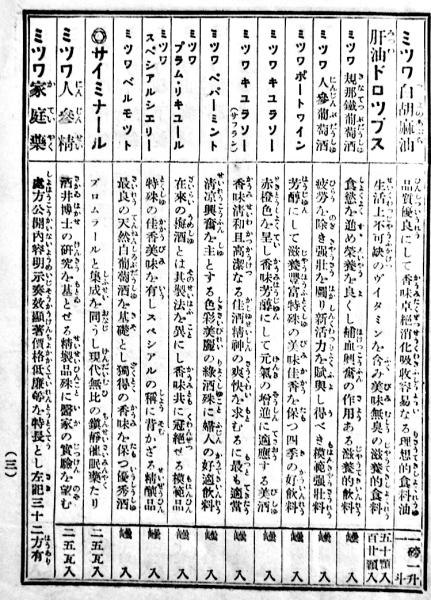 ミツワ 白胡麻油 品質優良にして香味佳絶消化吸收容易なる理想的食料油 一磅 一升 一斗
肝油ドロツプス 生活上不可缺のヴイタミンを含み美味無臭の滋養的食料 五十顆入 百廿顆入
ミツワ 規那鐵葡萄酒 食慾を進め榮養を良くし補血興奮の作用ある滋養的飮料 壜入
ミツワ 人參葡萄酒 疲勞を除き强壯を圖り新活力を賦與し得べき模範强壯料 壜入
ミツワ ポートワイン 芳醇にして滋養豐富特殊の美味佳香を保つ四季の好飮料 壜入
ミツワ キユラソー 赤橙色を呈し香味芳醇にして元氣の增進に適應する美酒 壜入
ミツワ キユラソー (サフラン) 香味淸和且高潔なる佳酒精神の爽快を求むるに最も適當 壜入
ミツワ ペパーミント 淸涼興奮を主とする色彩美麗の綠酒殊に婦人の好適飮料 壜入
ミツワ プラム・リキユール 在來の梅酒とは其製法を異にし香味共に冠絕せる模範品 壜入
ミツワ スペシアルシエリー 特殊の佳香美味を有しスペシアルの稱に背かざる精釀品 壜入
ミツワ ベルモツト 最良の天然白葡萄酒を基礎とし獨得の香味を保つ優秀酒 壜入
◎サイミナール ブロムラールと集成を同うし現代無比の鎭靜催眠藥たり 二五瓦入
ミツワ 人參精 酒井博士の硏究を基とせる精製品殊に醫家の實驗を望む 二五瓦入
ミツワ 家庭藥 處方公開內容明示奏效顯著價格低廉等を特長とし左記三十二方有
(三)